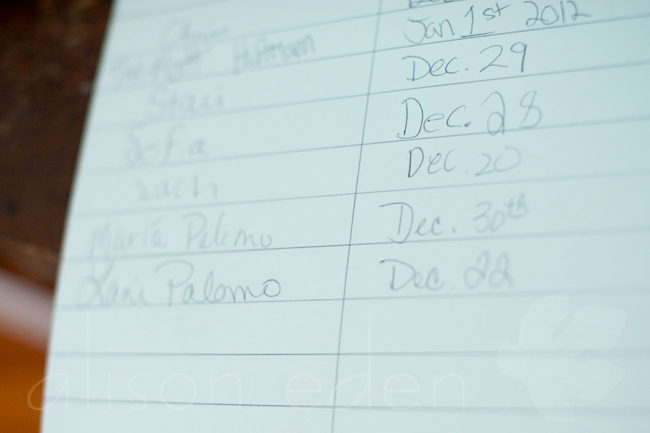 Jan 1st 2012
Huffman Dec. 29
Staci Dec. 28
Sofia Dec. 20
Zach Dec. 30th
Maria Palomo Dec. 22
Lani Palomo
alison eden